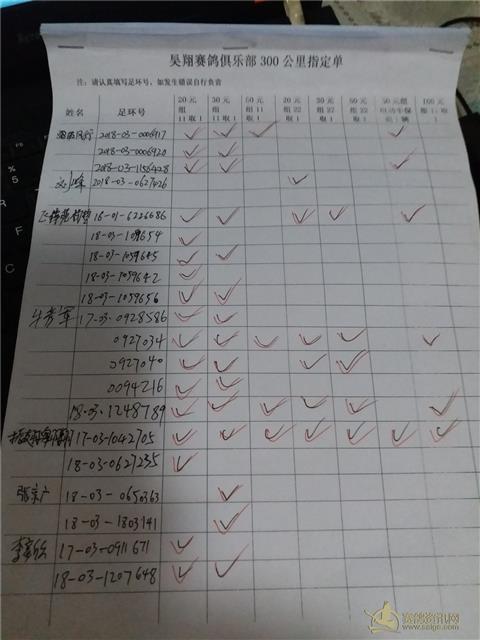 昊翔赛鸽俱乐部300公里指定单
注：请认真填写足环号，如发生错误自行负责
姓名 足环号 20元组11取1 30元组11取1 50元组11取1 20元组22取1 30元组22取1 50元组22取1 50元组 100元
2018-03-0006917
2018-03-0006920
2018-03-1156428
2018-03-0627026
18-01-6226686
18-03-1059654
18-03-1059645
18-03-1059642
18-03-1059656
牛秀军 17-03-0928586
0927034
0927040
0094216
18-03-1248789
17-03-1042705
18-03-0627235
张宗广 18-03-0650363
18-03-1803141
17-03-0911671
18-03-1207648
赛鸽资讯网
www.saige.com